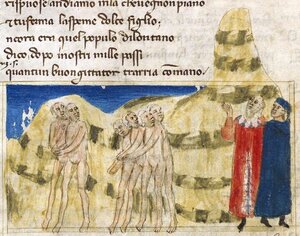 rispuose andiamo ila cheuegnon piano
⁊tu ferma laspeme dolce figlio.
ncora era quel populo dilontano
dico dopo inostri mille passi
quantun buon gittator trarria comano.